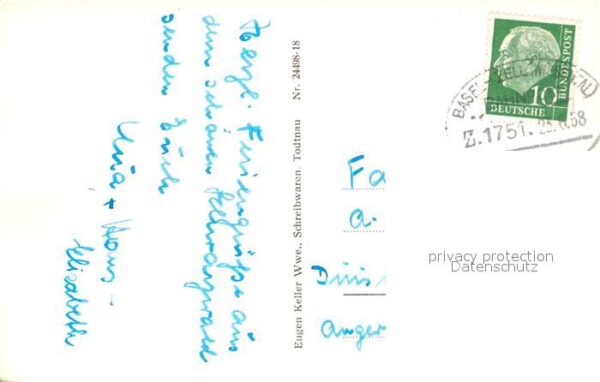 Herzl. Feriengrüße aus
dem schönen Schwarzwald
senden Euch
Hans -
Elisabeth
Eugen Keller Wwe., Schreibwaren, Todtnau Nr. 24498-18
DEUTSCHE
BUNDESPOST
10
BASEL - ZELL
Z.1751.
58
Fa
a.
Duis
Anger
privacy protection
Datenschutz